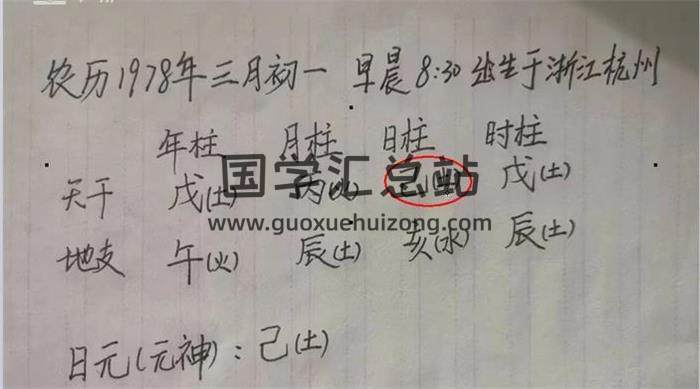 农历1978年三月初一 早晨8:30出生于浙江杭州
年柱 月柱 日柱 时柱
天干 戊(土) 丙(火) 戊(土)
国学汇总站
www.guoxuehuizong.com
地支 午(火) 辰(土) 亥(水) 辰(土)
日元(元神):己(土)